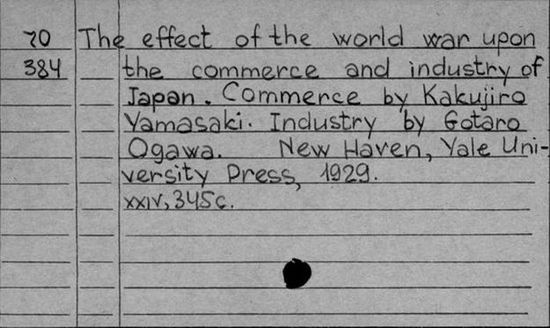 70 The effect of the world war upon
384 the commerce and industry of
Japan. Commerce by Kakujiro
Yamasaki. Industry by Gotaro
Ogawa. New Haven, Yale Uni-
versity Press, 1929.
xxiv, 345c.